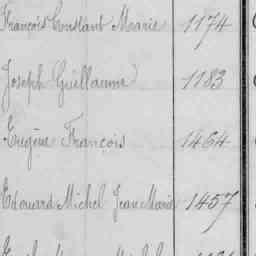 François Constant Marie 1174
Joseph Guillaume 1183
Eugène François 1464
Edouard Michel Jean Marie 1457